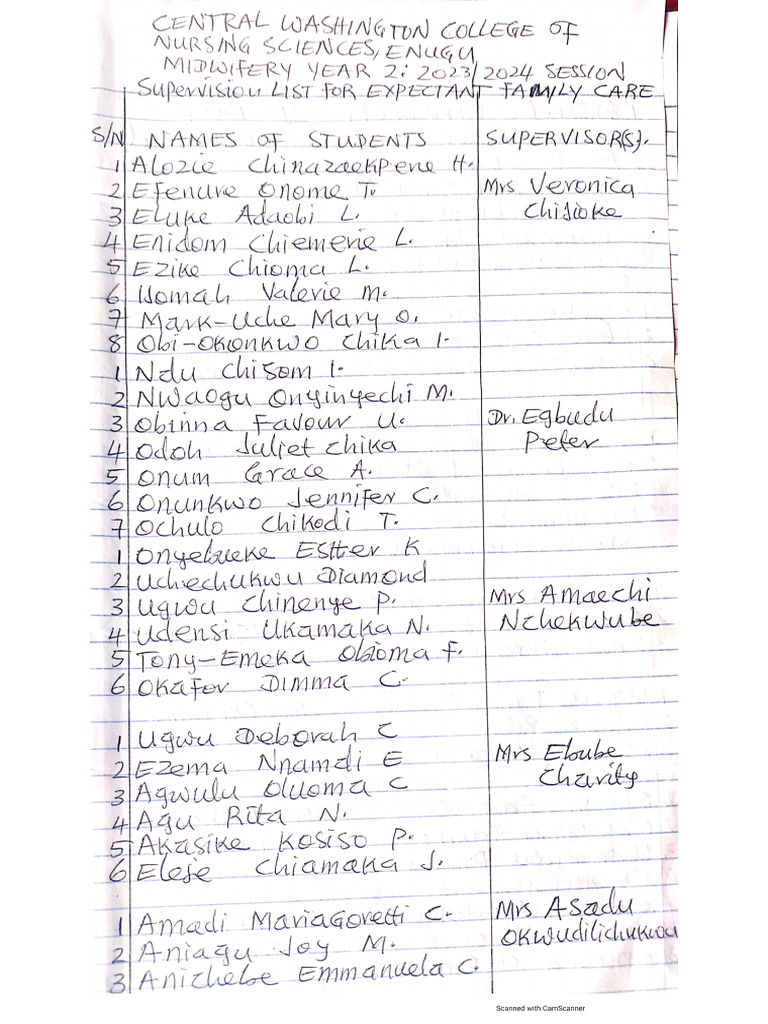 CENTRAL WASHINGTON COLLEGE OF
NURSING SCIENCES, ENUGU
MIDWIFERY YEAR 2: 2023/2024 SESSION
Supervision LIST FOR EXPECTANT FAMILY CARE
S/N NAMES OF STUDENTS SUPERVISOR(S).
1 Alozie Chinazaekpere H.
2 Efenure Onome T. Mrs Veronica
3 Eluke Adaobi L. Chijioke
4 Enidom Chiemerie L.
5 Ezike Chioma L.
6 Ilomah Valerie M.
7 Mark-Uche Mary O.
8 Obi-Okonkwo Chika I.
1 Ndu Chisom I.
2 Nwaogu Onyinyechi M.
3 Obinna Favour U. Dr. Egbudu
4 Odoh Juliet Chika Peter
5 Onum Grace A.
6 Onunkwo Jennifer C.
7 Ochulo Chikodi T.
1 Onyebueke Esther K
2 Uchechukwu Diamond
3 Ugwu Chinenye P. Mrs Amaechi
4 Udensi Ukamaka N. Nchekwube
5 Tony-Emeka Obioma F.
6 Okafor Dimma C.
1 Ugwu Deborah C
2 Ezema Nnamdi E Mrs Ebube
3 Agwulu Oluoma C Charity
4 Agu Rita N.
5 Akasike Kosiso P.
6 Eleje Chiamaka J.
1 Amadi Mariagoretti C. Mrs Asadu
2 Aniagu Joy M. Okwudilichukwu
3 Anichebe Emmanuela C.
Scanned with CamScanner